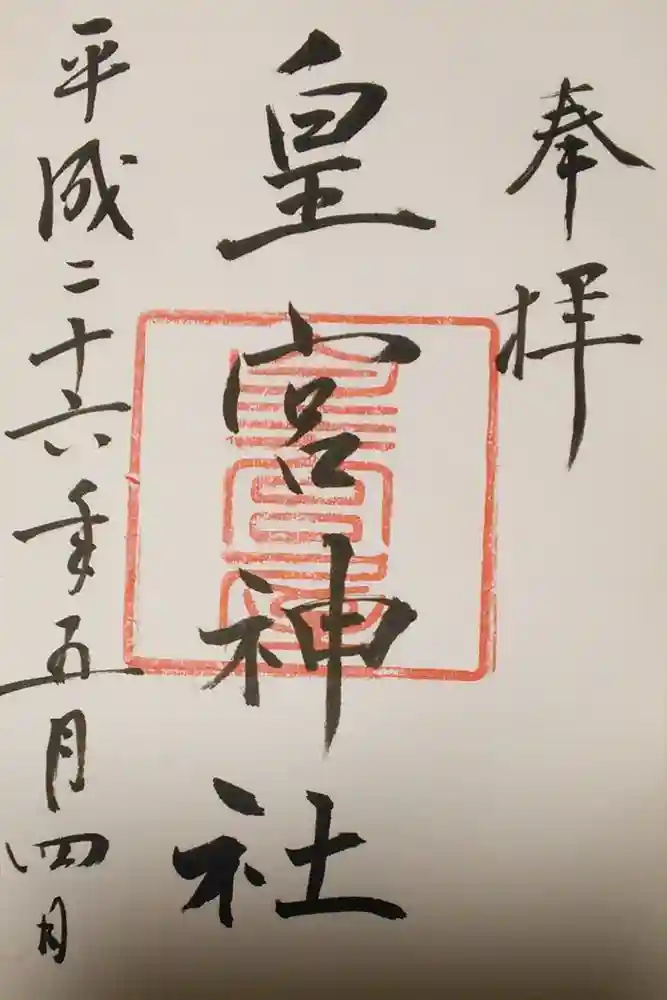 奉拝
皇宮神社
平成二十六年五月四日